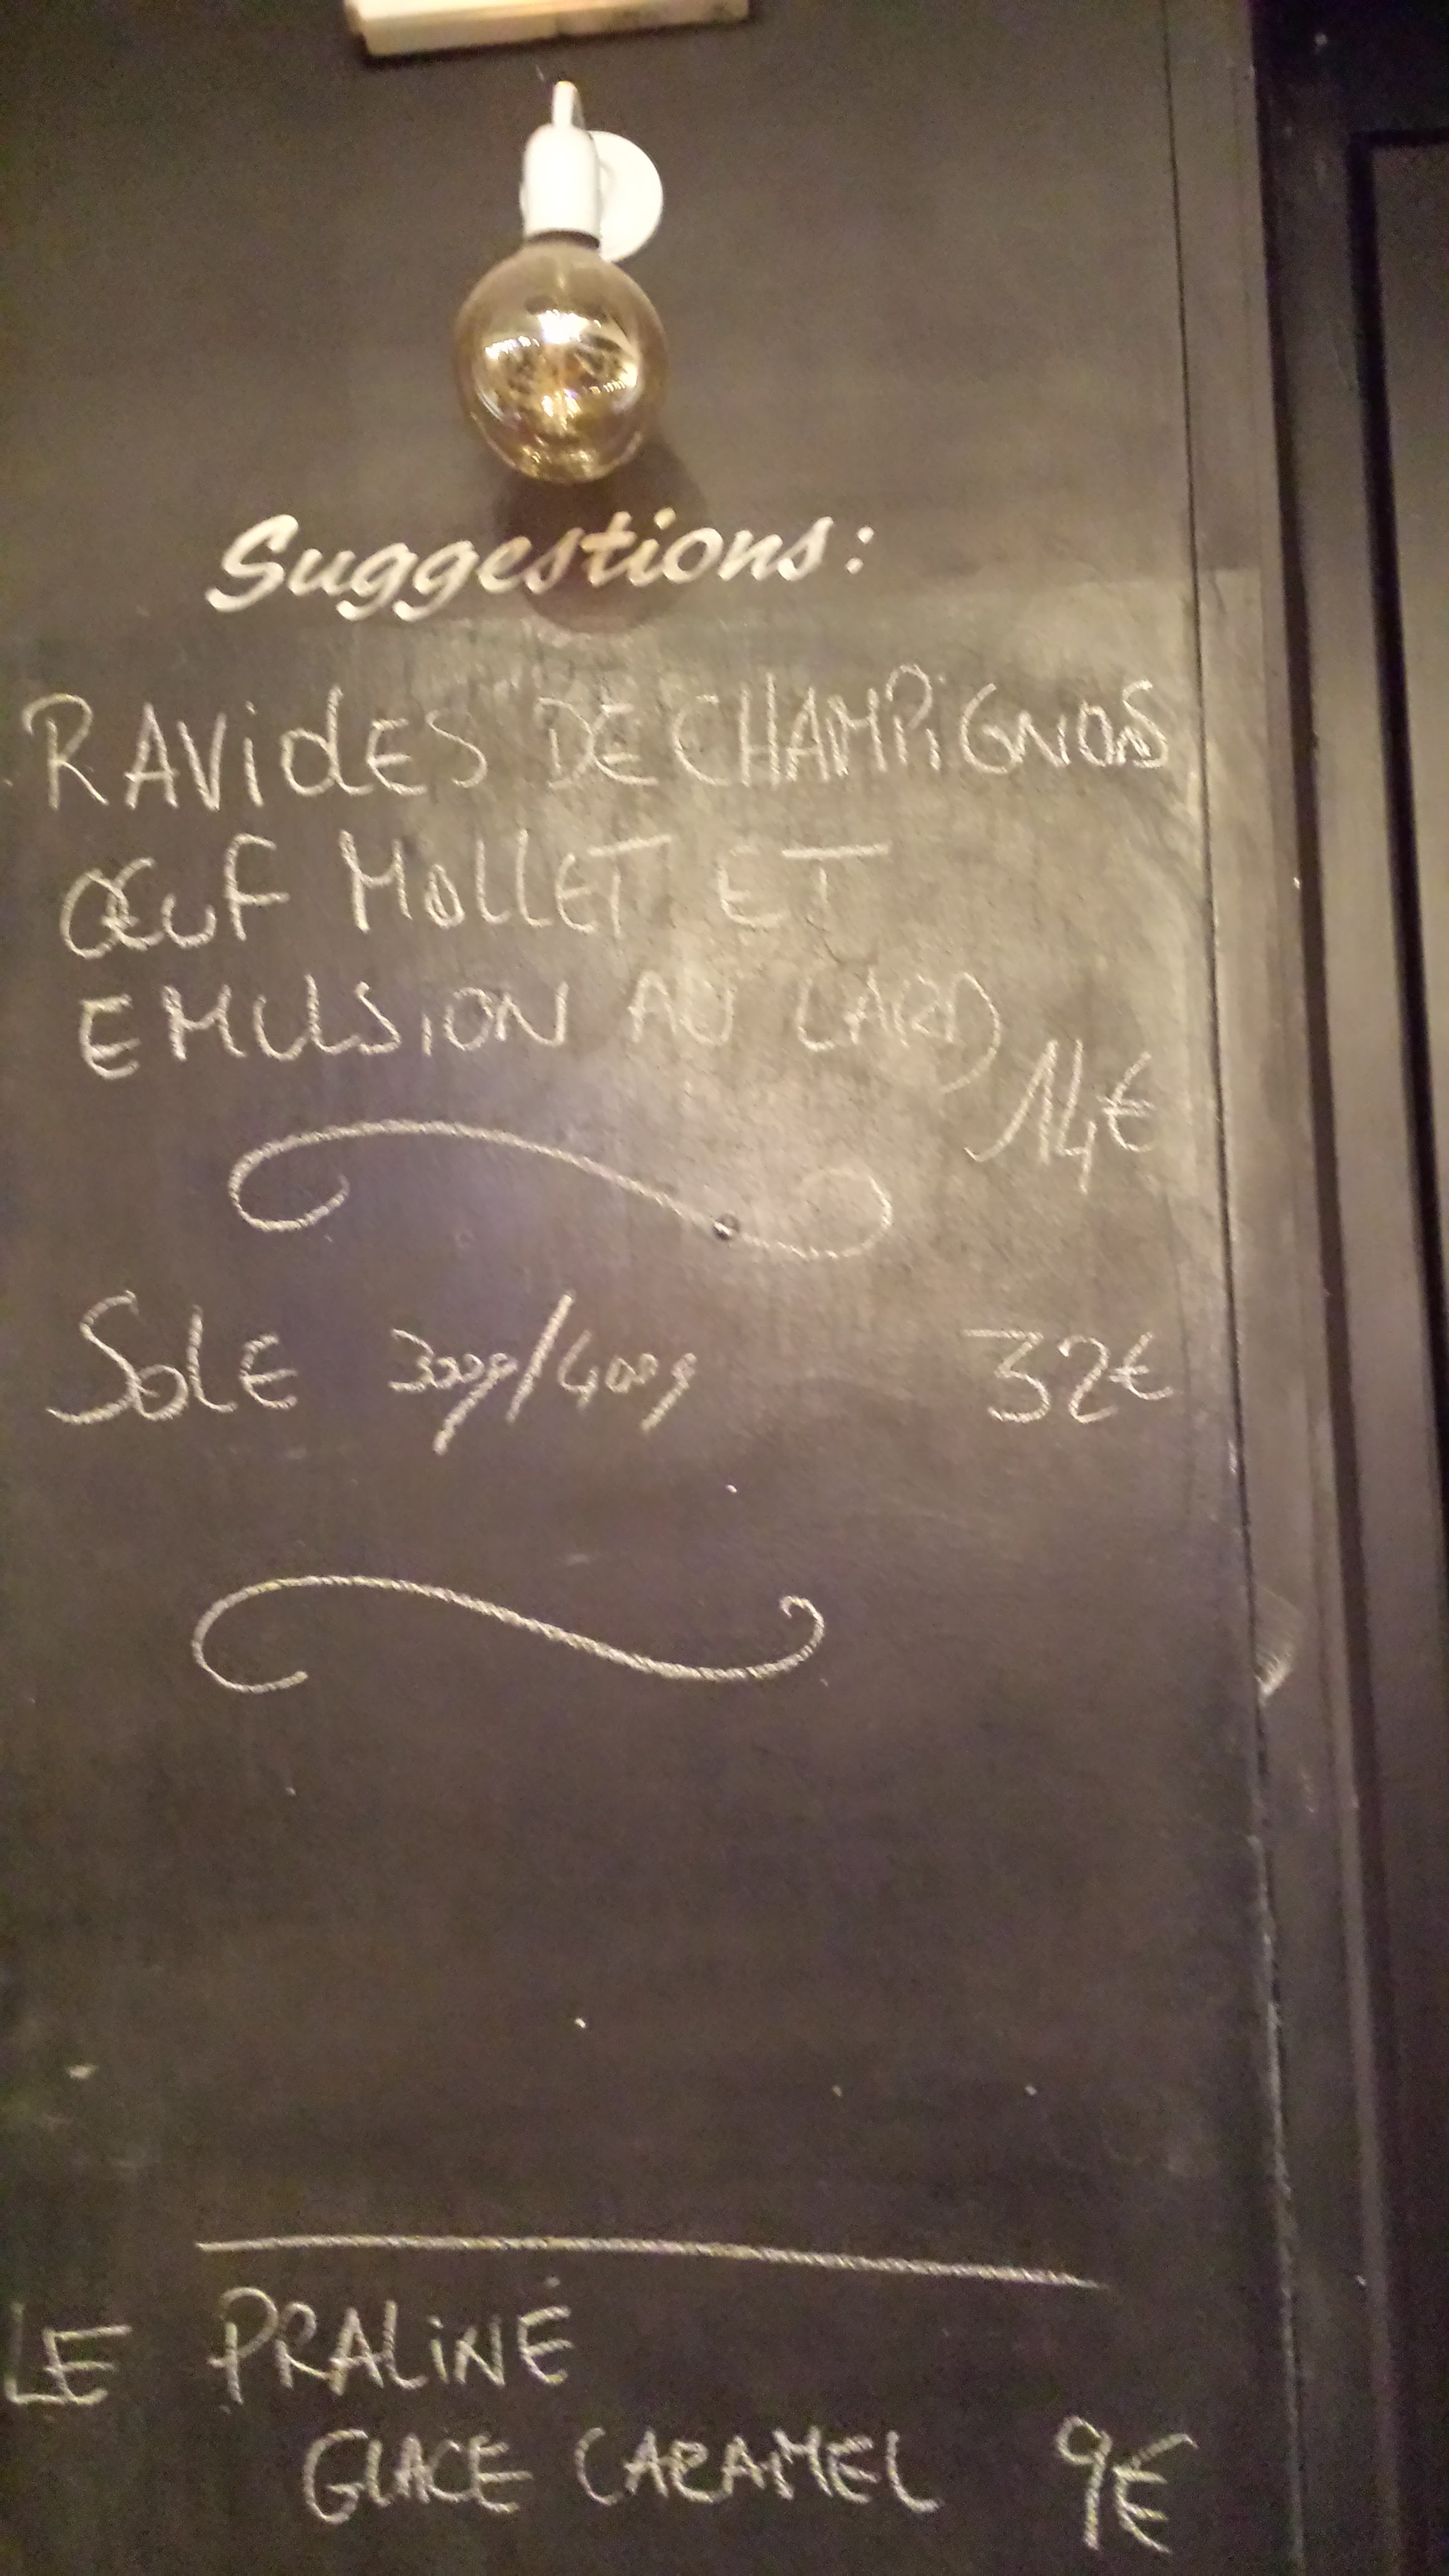 Suggestions:
RAVIOLES DE CHAMPIGNONS
ŒUF MOLLET ET
EMULSION AU LARD
14€
SOLE 300g/400g 32€
LE PRALINÉ
GLACE CARAMEL 9€